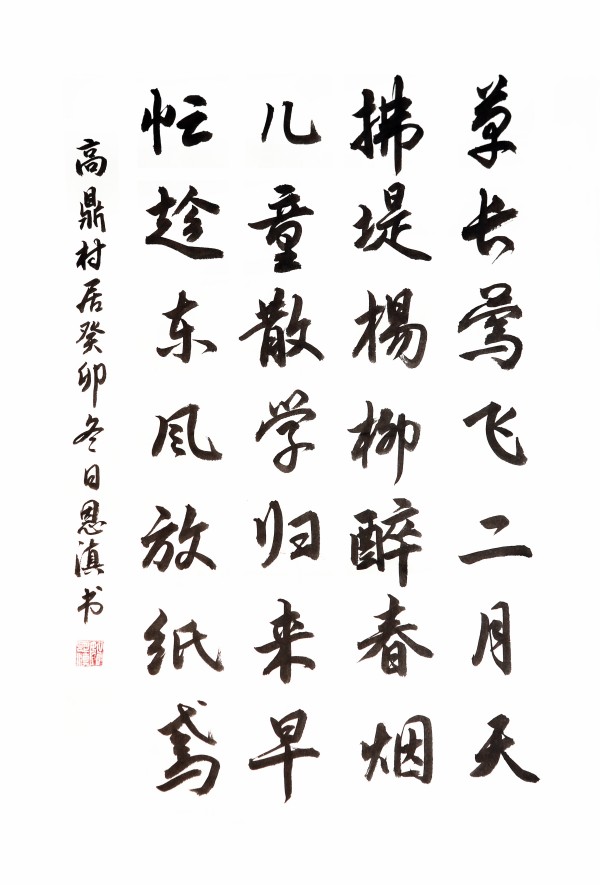 草长莺飞二月天
拂堤杨柳醉春烟
儿童散学归来早
忙趁东风放纸鸢
高鼎村居癸卯冬日恩滇书